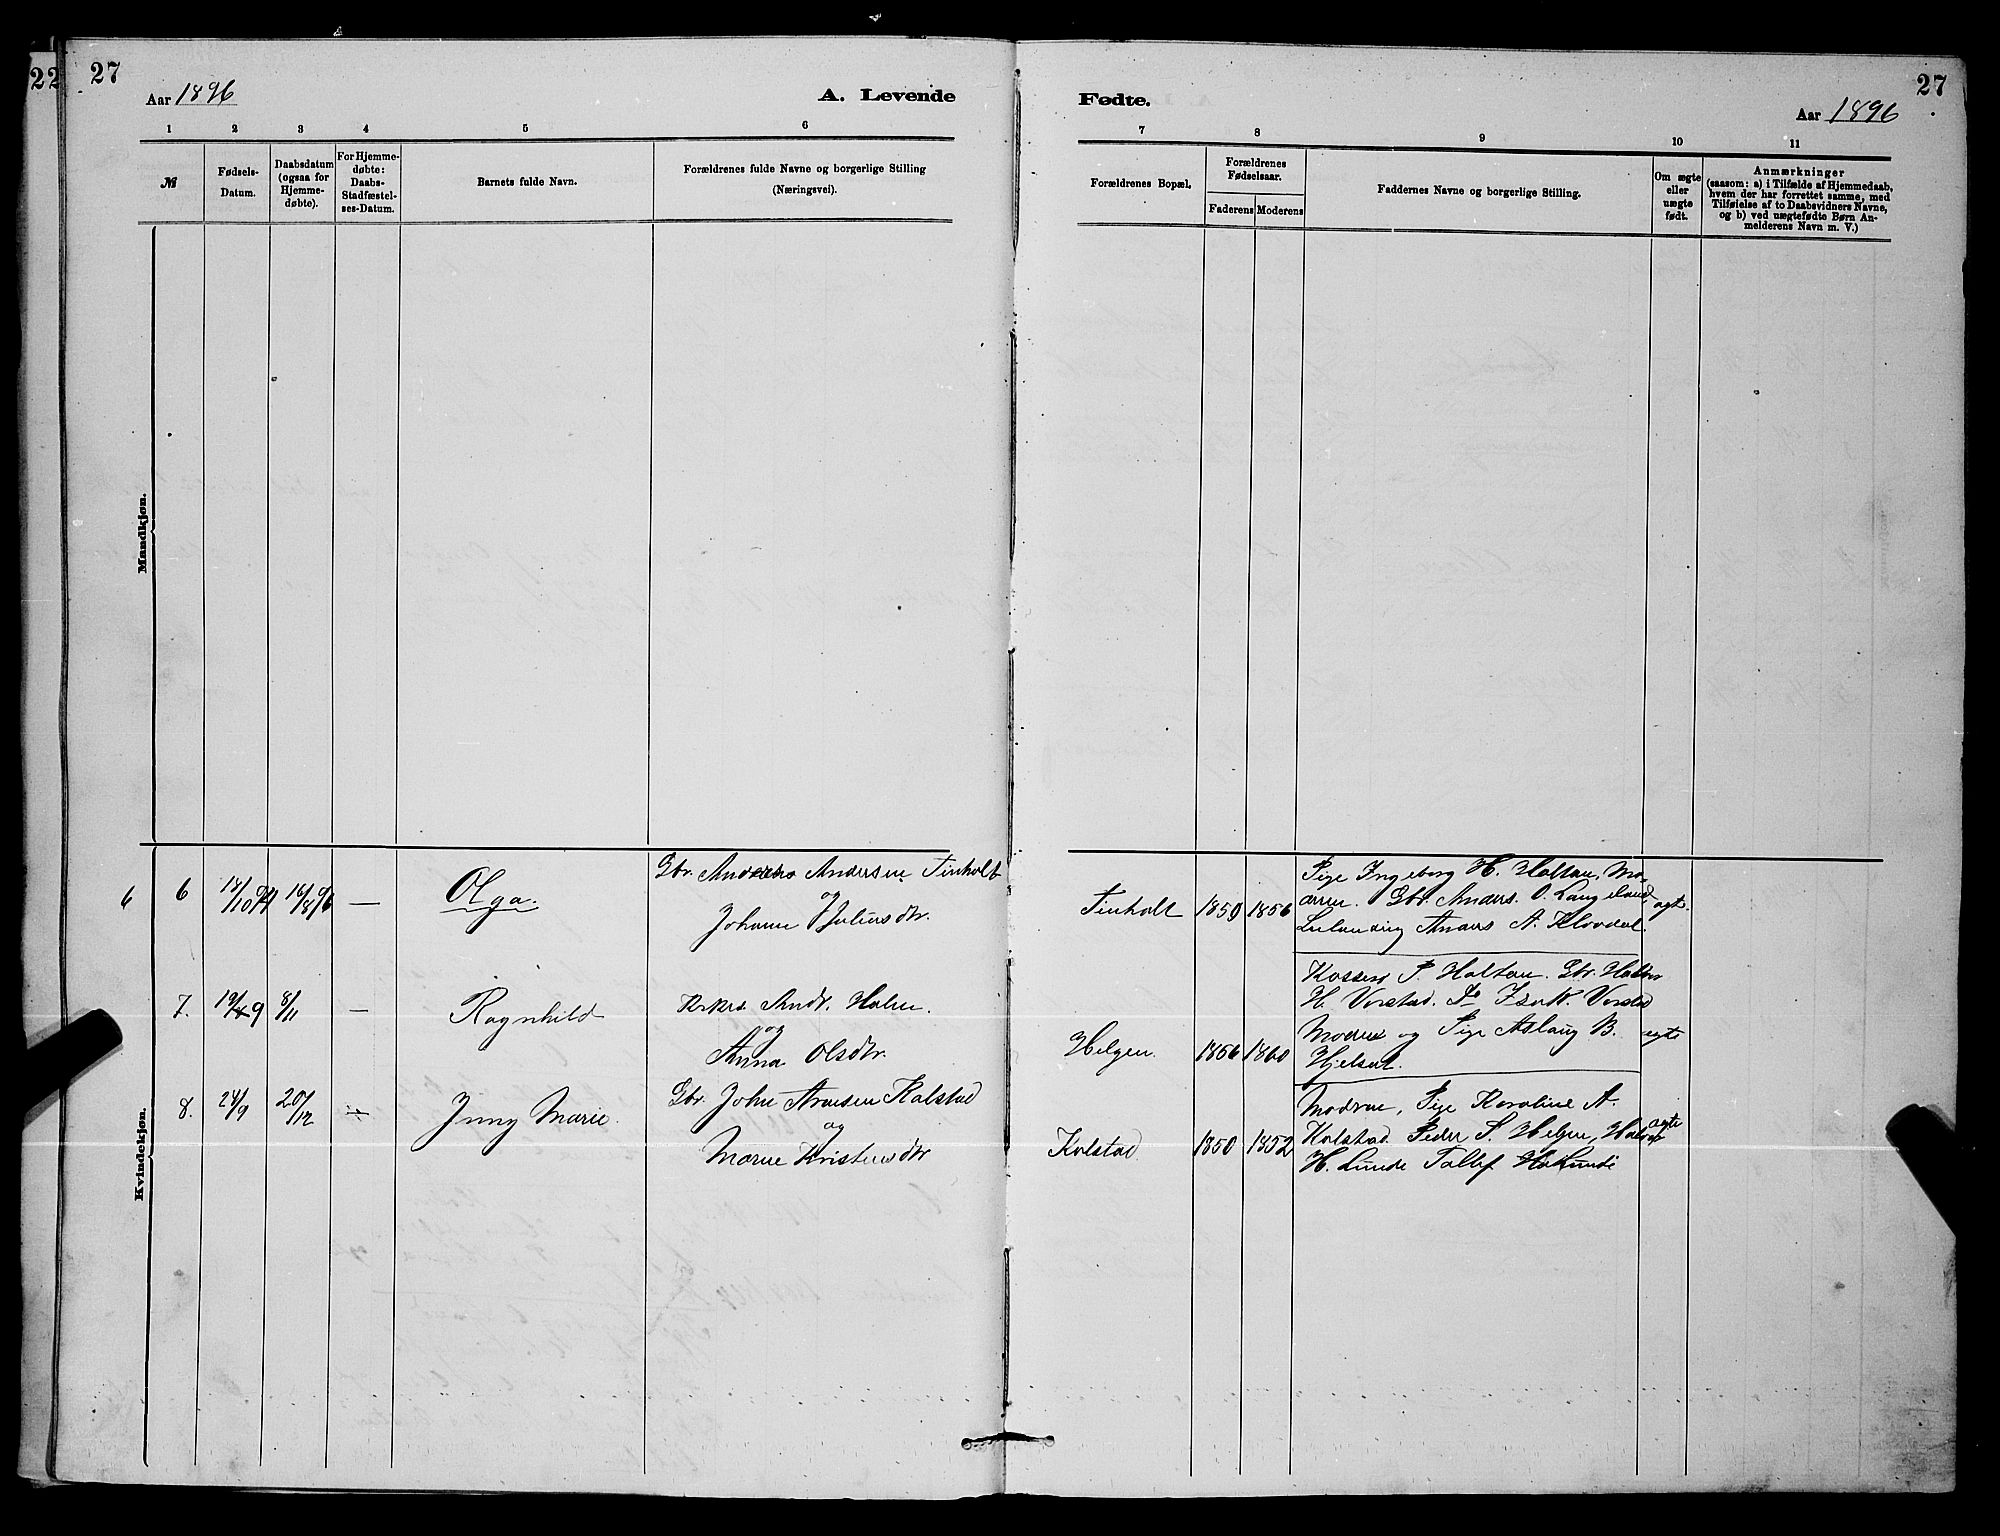 22
27
Aar 1896
A. Levende
1 2 3 4 5 6
№
Fødsels-
Datum.
Daabsdatum
(ogsaa for
Hjemme-
døbte).
For Hjemme-
døbte:
Daabs-
Stadfæstel-
ses-Datum.
Barnets fulde Navn.
Forældrenes fulde Navne og borgerlige Stilling
(Næringsvei).
Mandkjøn.
Kvindekjøn.
6 6 18/10 94 16/8 96 — Olga.
Gbr. Anders Andersen Tinholt
og
Johanne Juliusdtr.
7. 19/9 8/11 — Ragnhild
Kirkes. Andr. Holm.
og
Anna Olsdtr.
8. 24/9 20/12 Jenny Marie.
Gbr. John Arnesen Kolstad
og
Maren Kristensdtr
Fødte.
27
Aar 1896
7 8 9 10 11
Forældrenes Bopæl.
Forældrenes
Fødselsaar.
Faderens Moderens
Faddernes Navne og borgerlige Stilling.
Om ægte
eller
uægte
født.
Anmærkninger
(saasom: a) i Tilfælde af Hjemmedaab,
hvem der har forrettet samme, med
Tilføielse af to Daabsvidners Navne,
og b) ved uægtefødte Børn An-
melderens Navn m. V.)
Tinholt 1859 1856
Pige Ingeborg H. Holtan, Mo-
deren. Gbr. Anders O. Langeland
Anders A. Klovdal.
ægt.
Helgen. 1856 1860
P. Holtan. Gbr. Halvor
H. Vorstad. Do Isak Vorstad
Moderen og Pige Aslaug B.
ægte
Kolstad 1850 1852
Modren, Pige Karoline A.
Kolstad. Peder S. Helgen, Halvor
H. Lunde Tollef H. Lunde
ægte